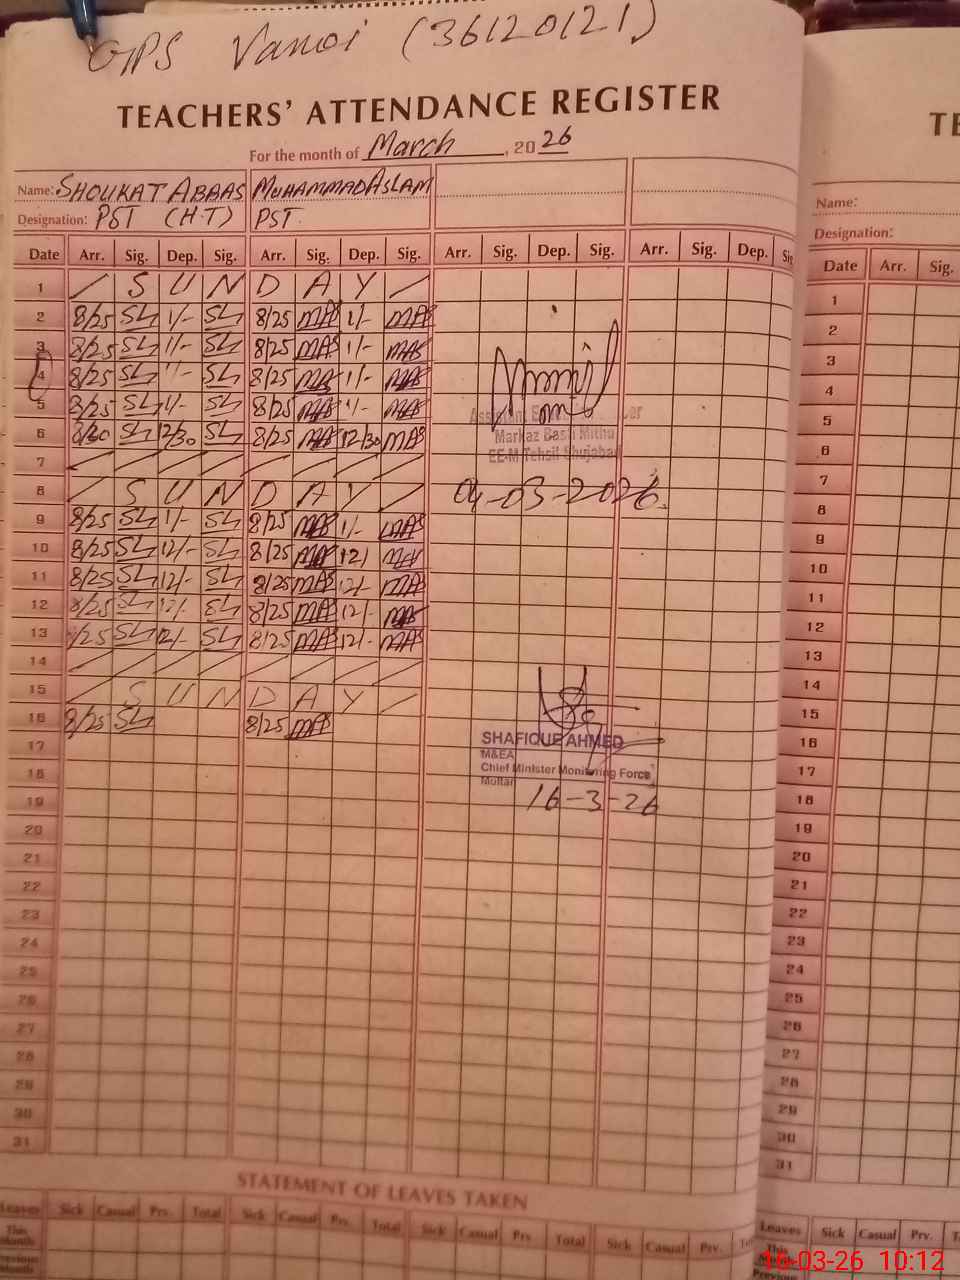 GPS Vanoi (36120121)
TEACHERS' ATTENDANCE REGISTER
For the month of March, 2026
Name: SHOUKAT ABBAS MUHAMMAD ASLAM
Designation: PST (H.T) PST.
Date Arr. Sig. Dep. Sig. Arr. Sig. Dep. Sig. Arr. Sig. Dep. Sig. Arr. Sig. Dep.
1 / S U N D A Y /
2 8/25 SH 1/- SH 8/25 MAS 1/- MAS
3 8/25 SH 1/- SH 8/25 MAS 1/- MAS
4 8/25 SH 1/- SH 8/25 MAS 1/- MAS
5 8/25 SH 1/- SH 8/25 MAS 1/- MAS
6 SH 12/30 SH 8/25 MAS 12/30 MAS
7 / / / / / / / /
8 / S U N D A Y /
9 8/25 SH 1/- SH 8/25 MAS 1/- MAS
10 8/25 SH 12/- SH 8/25 MAS 12/ MAS
11 8/25 SH 12/- SH 8/25 MAS 12/- MAS
12 8/25 SH 12/- SH 8/25 MAS 12/- MAS
13 8/25 SH 12/- SH 8/25 MAS 12/- MAS
14 / / / / / / / /
15 / S U N D A Y /
16 8/25 SH 8/25 MAS
17
18
19
20
21
22
23
24
25
26
27
28
29
30
31
Markaz Basti Mithu
EE-M Tehsil Shujabad
04-03-2026.
SHAFIQUE AHMED
M&EA
Chief Minister Monitoring Force
Multan
16-3-26
STATEMENT OF LEAVES TAKEN
Leaves Sick Casual Prv. Total Sick Casual Prv. Total Sick Casual Prv. Total Sick Casual Prv.
This Month
Previous Month
Name:
Designation:
Date Arr. Sig.
1
2
3
4
5
6
7
8
9
10
11
12
13
14
15
16
17
18
19
20
21
22
23
24
25
26
27
28
29
30
31
Leaves Sick Casual Prv.
This
16-03-26 10:12